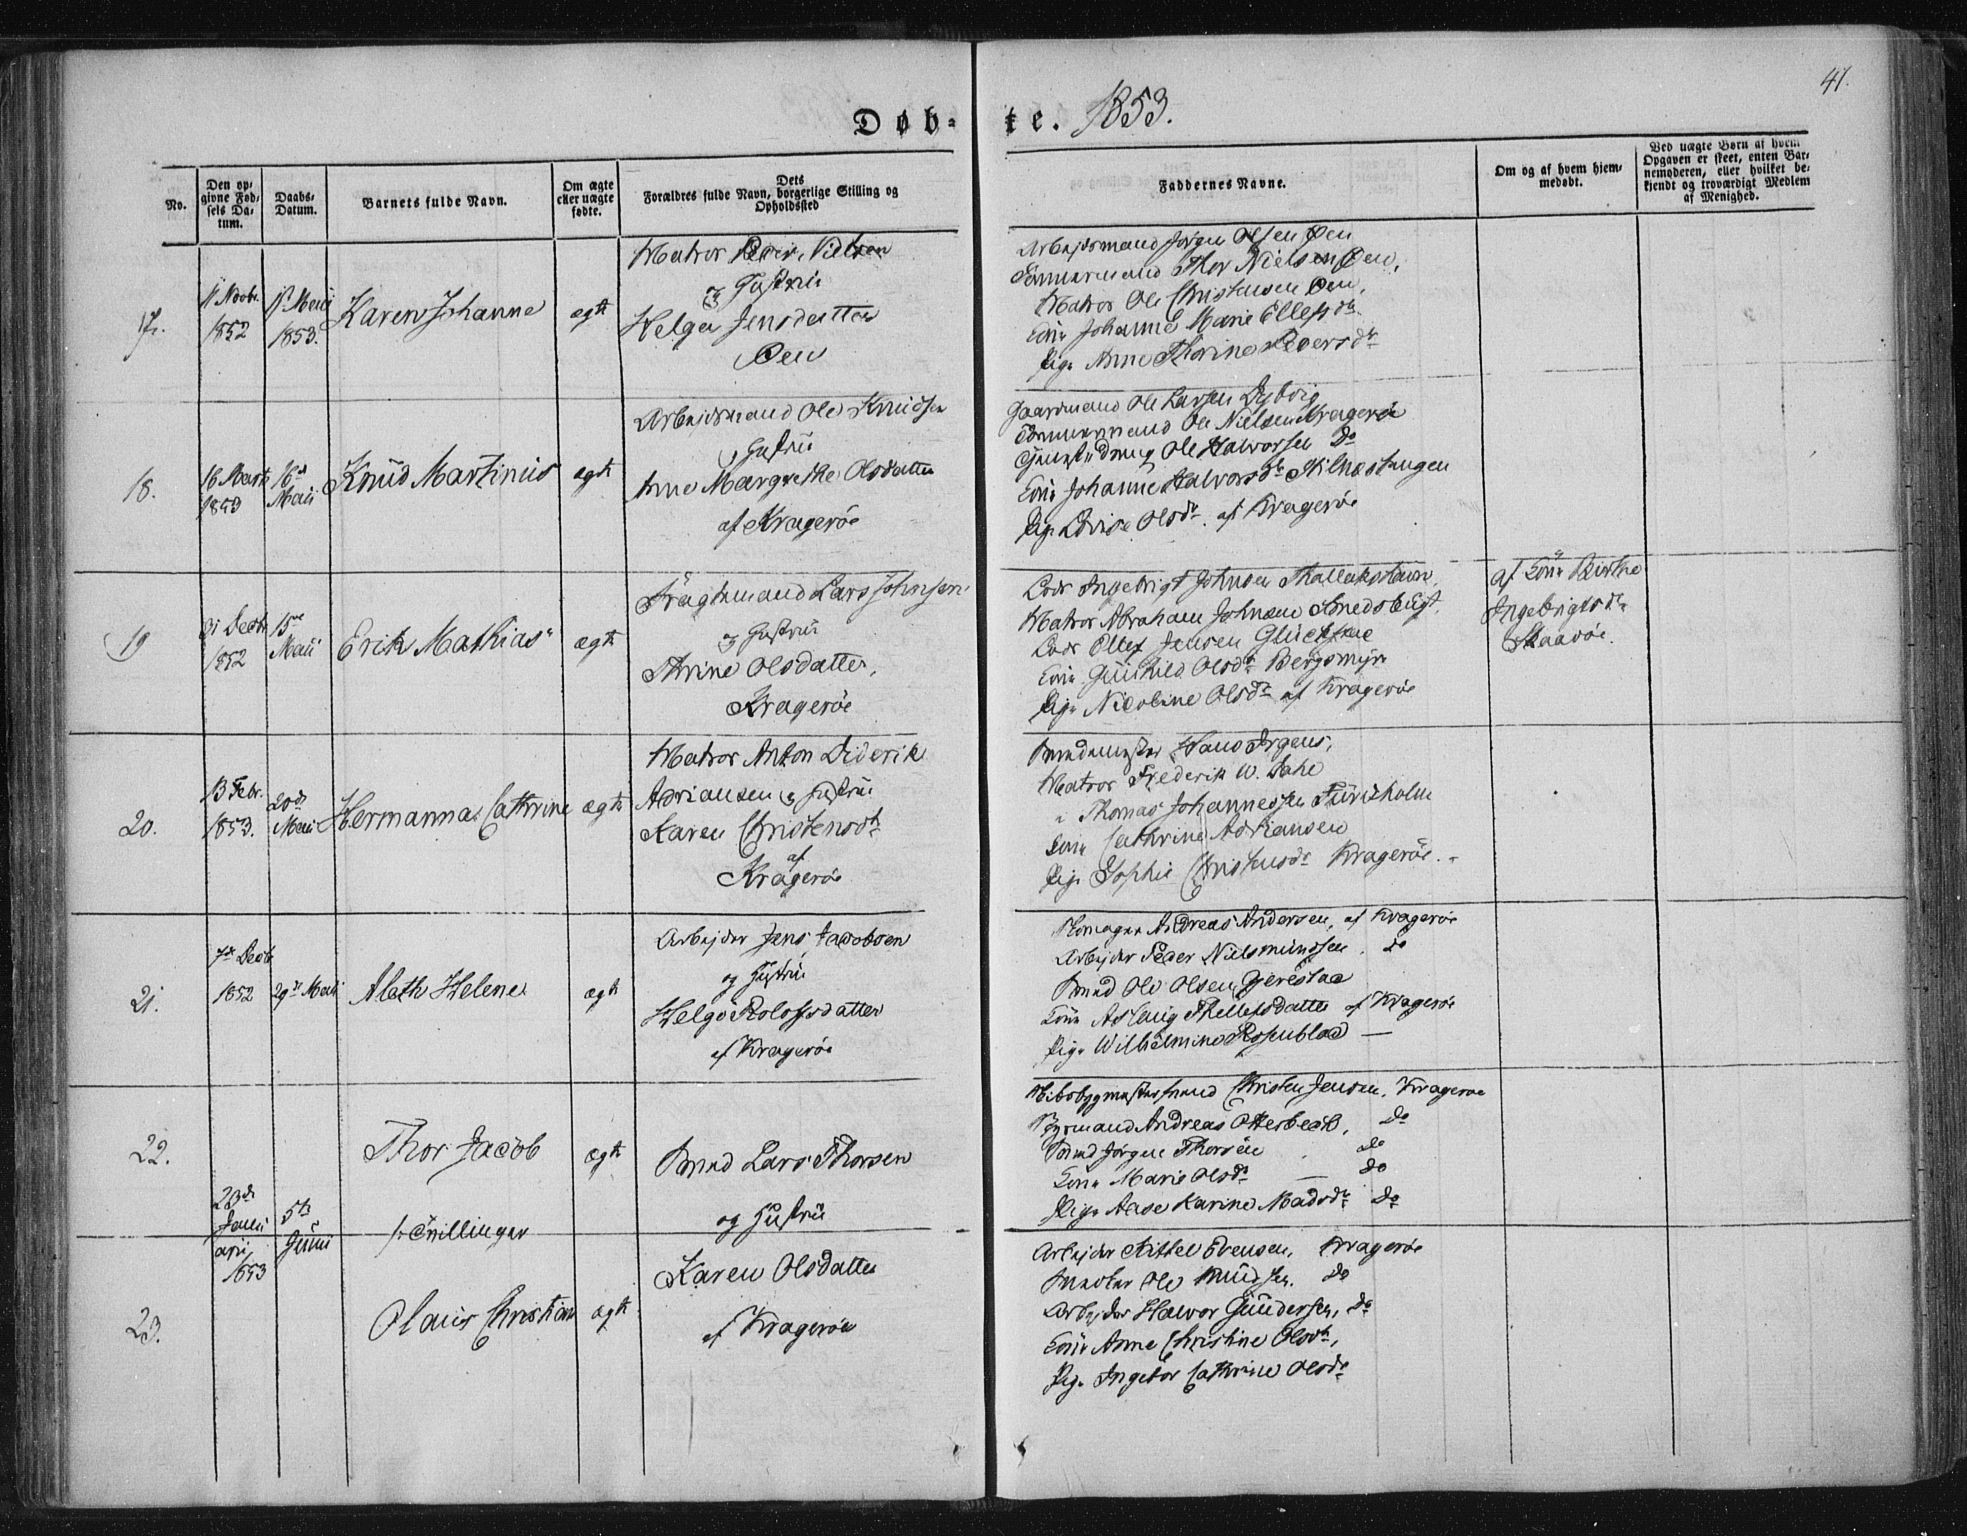 41.
Døb-te. 1853.
No.
Den op-
givne Fød-
sels Da-
tum.
Daabs-
Datum.
Barnets fulde Navn.
Om ægte
eller uægte
fødte.
Dets
Forældres fulde Navn, borgerlige Stilling og
Opholdssted
Faddernes Navne.
Om og af hvem hjem-
medøbt.
Ved uægte Børn af hvem
Opgaven er skeet, enten Bar-
nemoderen, eller hvilket be-
kjendt og troværdigt Medlem
af Menighed.
17.
1852
1853.
Karen Johanne
ægte
Matros Peder Nielsen
og Hustrue
Helga Jensdatter
Øen
Arbejdsmand Jørgen Olsen Øen
Tømmermand Thor Nielsen Øen,
Matros Ole Christensen Øen,
Kone Johanne Marie Ellefsdtr
Pige Anne Thorine Pedersdtr
18.
16 Marts
1853
16de
Maii
Knud Martinus
ægte
Arbejdsmand Ole Knudsen
og Hustrue
Anne Margrethe Olsdatter
af Kragerøe
Gaardmand Ole Larsen Dybvig
Tømmermand Ole Nielsen Kragerøe
Ole Halvorsen do
Kone Johanne Halvorsdtr
Pige Lovise Olsdtr af Kragerøe
19
31 Decbr
1852
15de
Maii
Erik Mathias
ægte
Fragtemand Lars Johnsen
og Hustrue
Olsdatter,
Kragerøe
Lods Ingebrigt Johnsen
Matros Abraham Johnsen
Lods Ellef Jensen
Kone Gunhild Olsdtr Bergsmyr
Pige Nicoline Olsdtr af Kragerøe
af Kone Birthe
Ingebrigtsdtr
Skaadøe.
20.
13 Febr.
1853.
20de
Maii
Hermanna Cathrine
ægte
Matros Anton Diderik
Adriansen og Hustrue
Karen Christensdtr
af
Kragerøe
Hans Jrgens,
Matros Frederik W. Dahl
Thomas Johannessen Furuholm
Kone Cathrine Adriansen
Pige Sophie Christensdtr Kragerøe.
21.
7de Decbr
1852
29de Maii
Aleth Helene
ægte
Arbejder Jens Jacobsen
og Hustrue
Helge Rolofsdatter
af Kragerøe
Andreas Andersen, af Kragerøe
Arbejder Peder Nielsmundsen. do
Ole Olsen Gjerestad
Kone Aslaug Thellefsdatter af Kragerøe
Pige Wilhelmine Rosenblad —
22.
23de
Janu
arii
1853
5te
Junii
Thor Jacob
/: Tvillinger
ægte
Lars Thorsen
og Hustrue
Karen Olsdatter
af Kragerøe
Skibsbygmestersvend Christen Jensen, Kragerøe
Styrmand Andreas Otterbech, do
Jørgen Thorsen do
Kone Marie Olsdtr — do
Pige Aase Karine Madsdtr do
23.
Olaus Christian
ægte
Arbejder Kittel Evensen, Kragerøe
Ole Knudsen. do
Arbejder Halvor Gundersen, do
Kone Anne Christine Olsdtr,
Pige Ingebor Cathrine Olsdtr